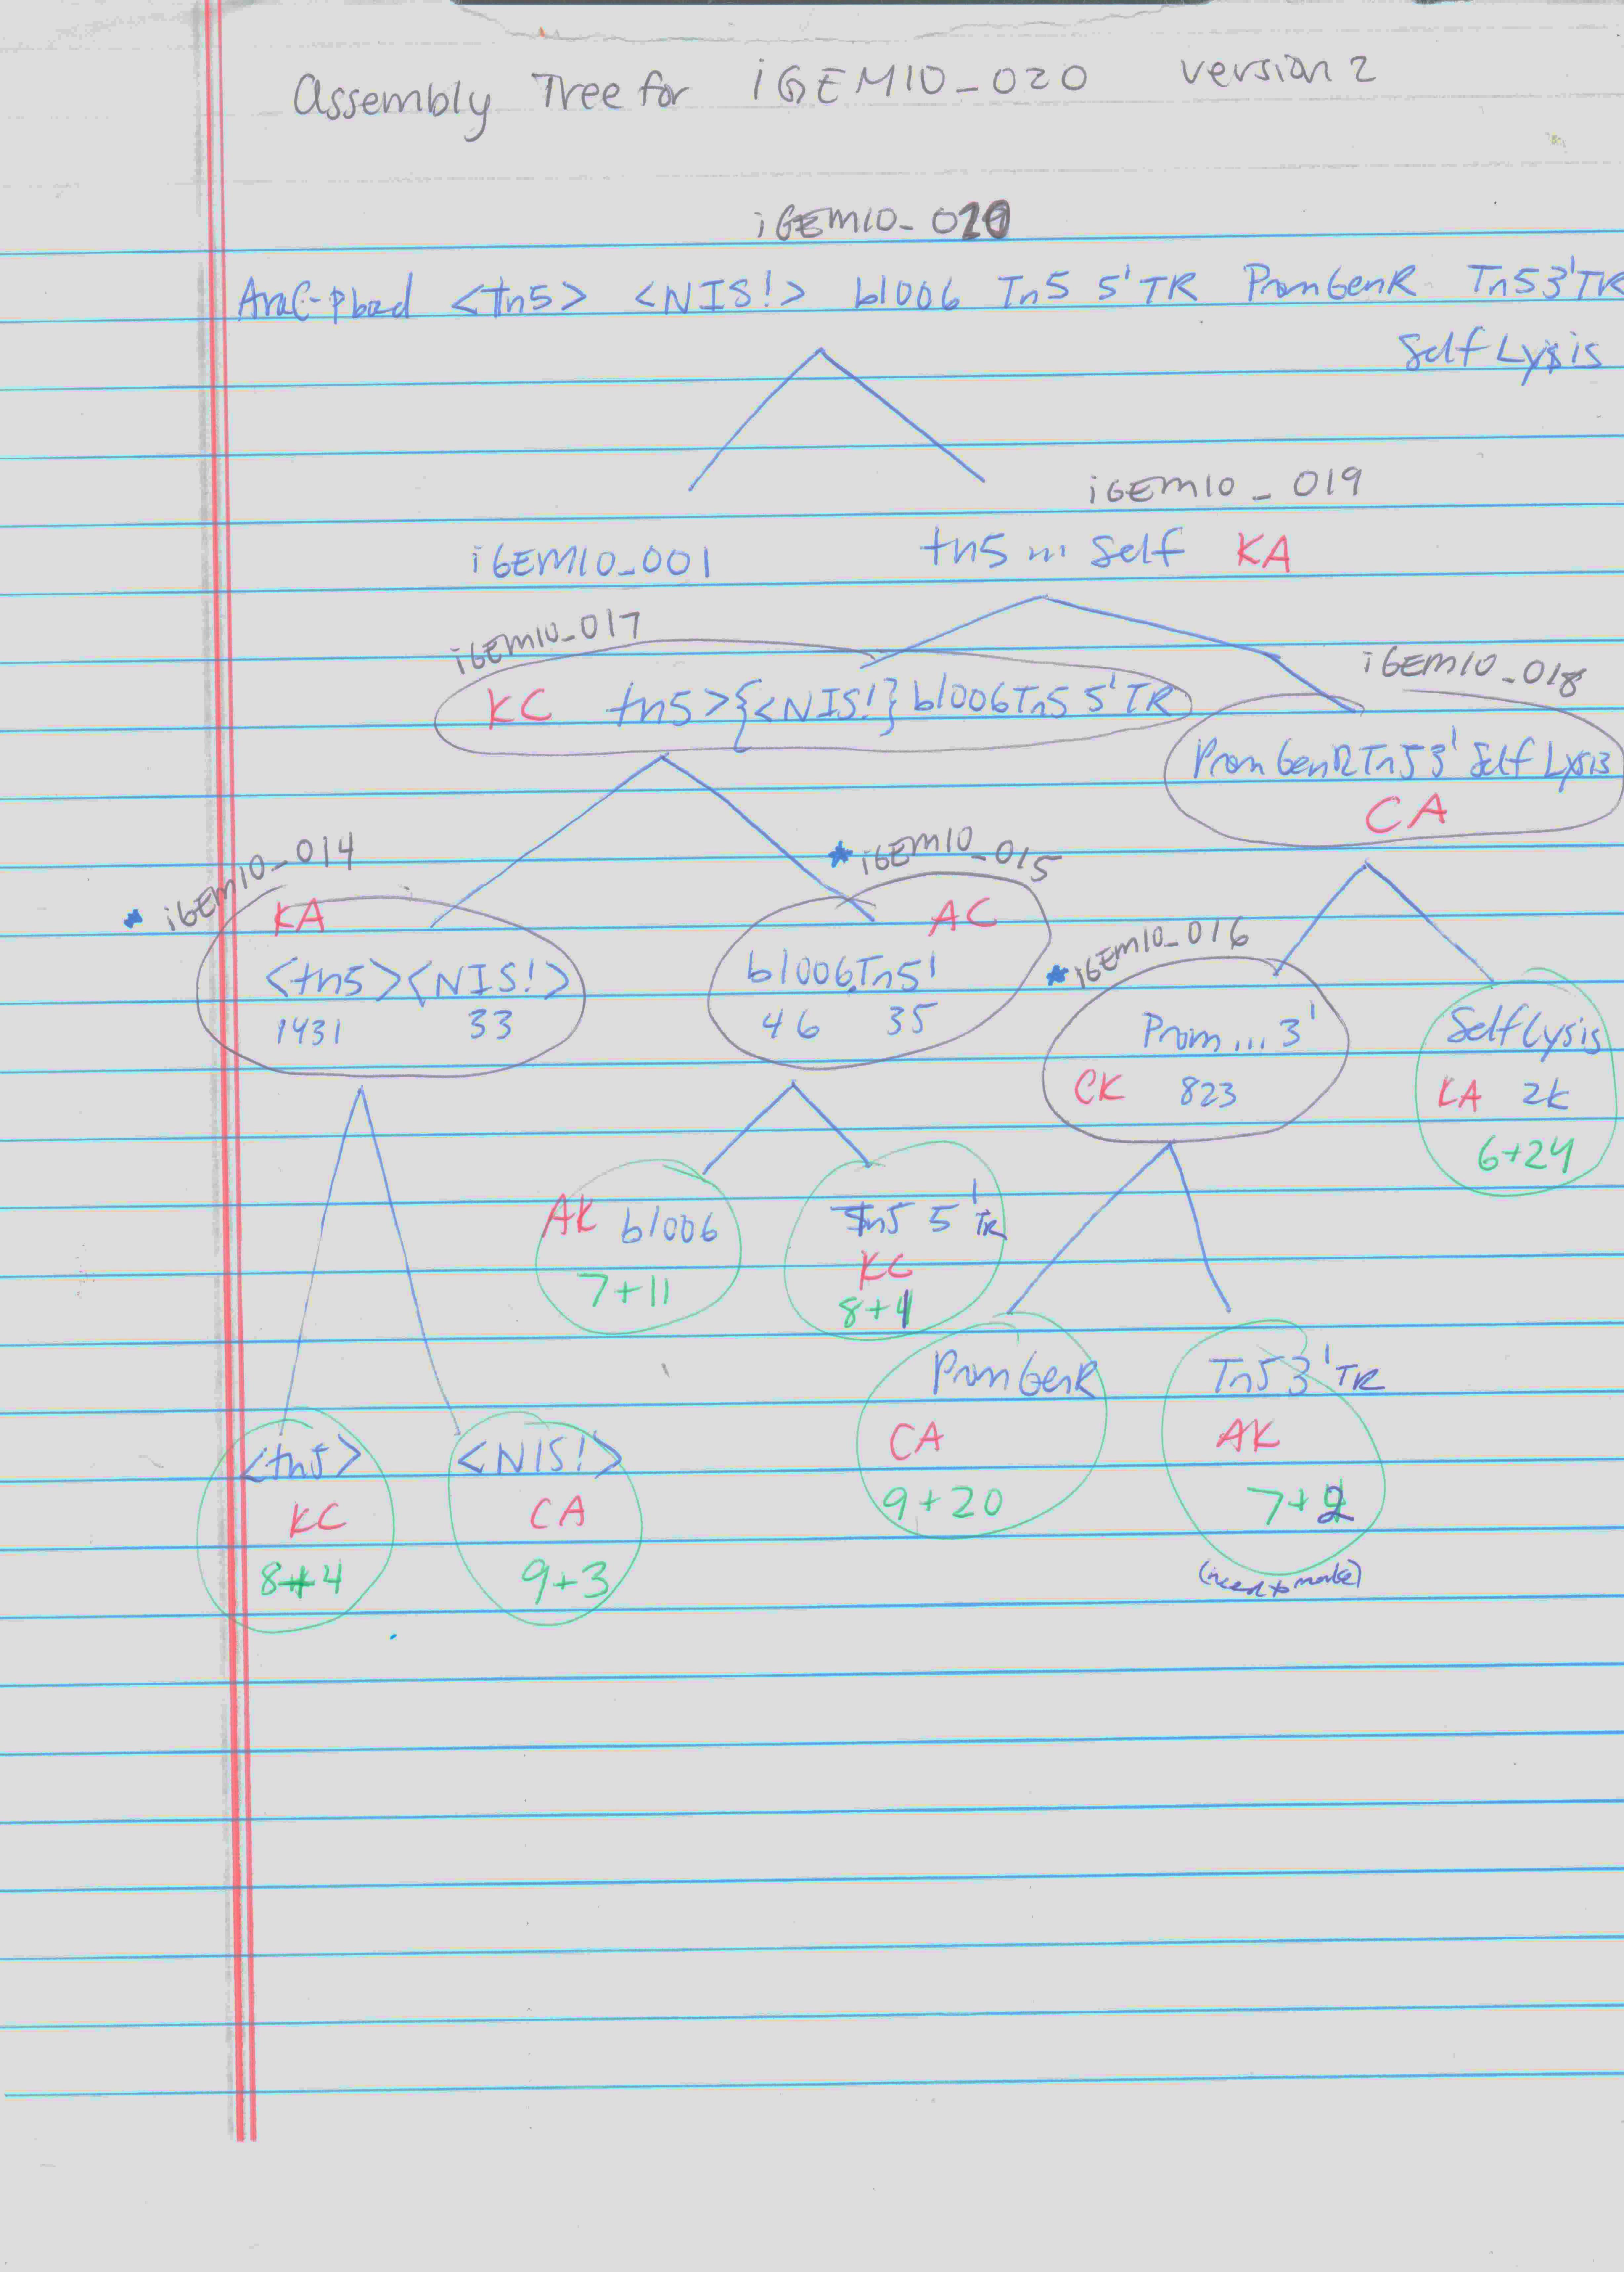 Assembly Tree for iGEM10_020 version 2
iGEM10_020
AraC-pbad <tn5> <NIS!> b1006 Tn5 5'TR PromGenR Tn53'TR
Self Lysis
iGEM10_019
iGEM10_001 tn5 ... Self KA
iGEM10_017
iGEM10_018
KC tn5>{<NIS!} b1006Tn5 5'TR
PromGenRTn53' Self Lysis
CA
* iGEM10_014
* iGEM10_015
KA
AC
* iGEM10_016
<tn5><NIS!>
b1006.Tn5'
1431 33
46 35
Prom...3'
CK 823
Self Lysis
KA 2k
6+24
AK b1006
7+11
Tn5 5'TR
KC
8+1
PromGenR
CA
9+20
Tn53'TR
AK
7+2
(need to make)
<tn5>
KC
8+4
<NIS!>
CA
9+3